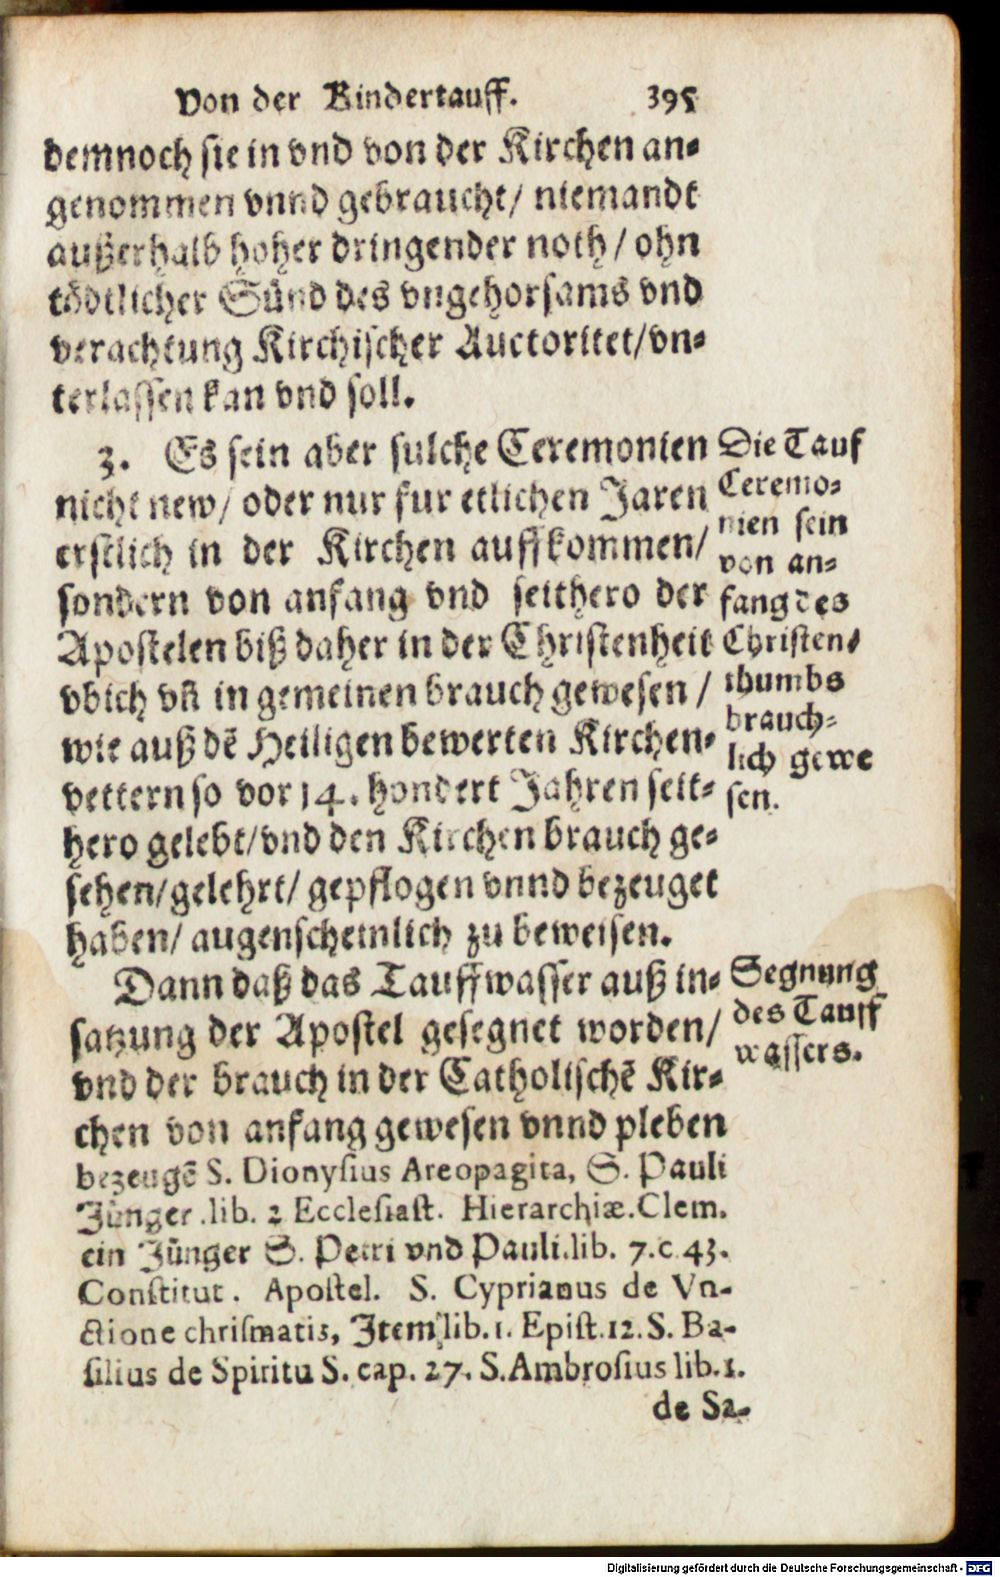 Von der Kindertauff. 395
demnoch sie in vnd von der Kirchen an-
genommen vnnd gebraucht/ niemandt
außerhalb hoher dringender noth/ ohn
tödtlicher Sünd des vngehorsams vnd
verachtung Kirchischer Auctoritet/vn-
terlassen kan vnd soll.
3. Es sein aber sulche Ceremonien
nicht new/ oder nur fur etlichen Jaren
erstlich in der Kirchen auffkommen/
sondern von anfang vnd seithero der
Apostelen biß daher in der Christenheit
vblich vñ in gemeinen brauch gewesen/
wie auß dē Heiligen bewerten Kirchen-
vettern so vor 14. hondert Jahren seit-
hero gelebt/vnd den Kirchen brauch ge-
sehen/gelehrt/ gepflogen vnnd bezeuget
haben/ augenscheinlich zu beweisen.
Die Tauf
Ceremo-
nien sein
von an-
fang des
Christen-
thumbs
brauch-
lich gewe
sen.
Dann daß das Tauffwasser auß in-
satzung der Apostel gesegnet worden/
vnd der brauch in der Catholischē Kir-
chen von anfang gewesen vnnd pleben
bezeugē S. Dionysius Areopagita, S. Pauli
Jünger .lib. 2 Ecclesiast. Hierarchiæ.Clem.
ein Jünger S. Petri vnd Pauli.lib. 7.c 43.
Constitut. Apostel. S. Cyprianus de Vn-
ctione chrismatis, Jtem lib.1. Epist.12.S. Ba-
silius de Spiritu S. cap. 27. S.Ambrosius lib.1.
de Sa-
Segnung
des Tauff
wassers.
Digitalisierung gefördert durch die Deutsche Forschungsgemeinschaft - DFG